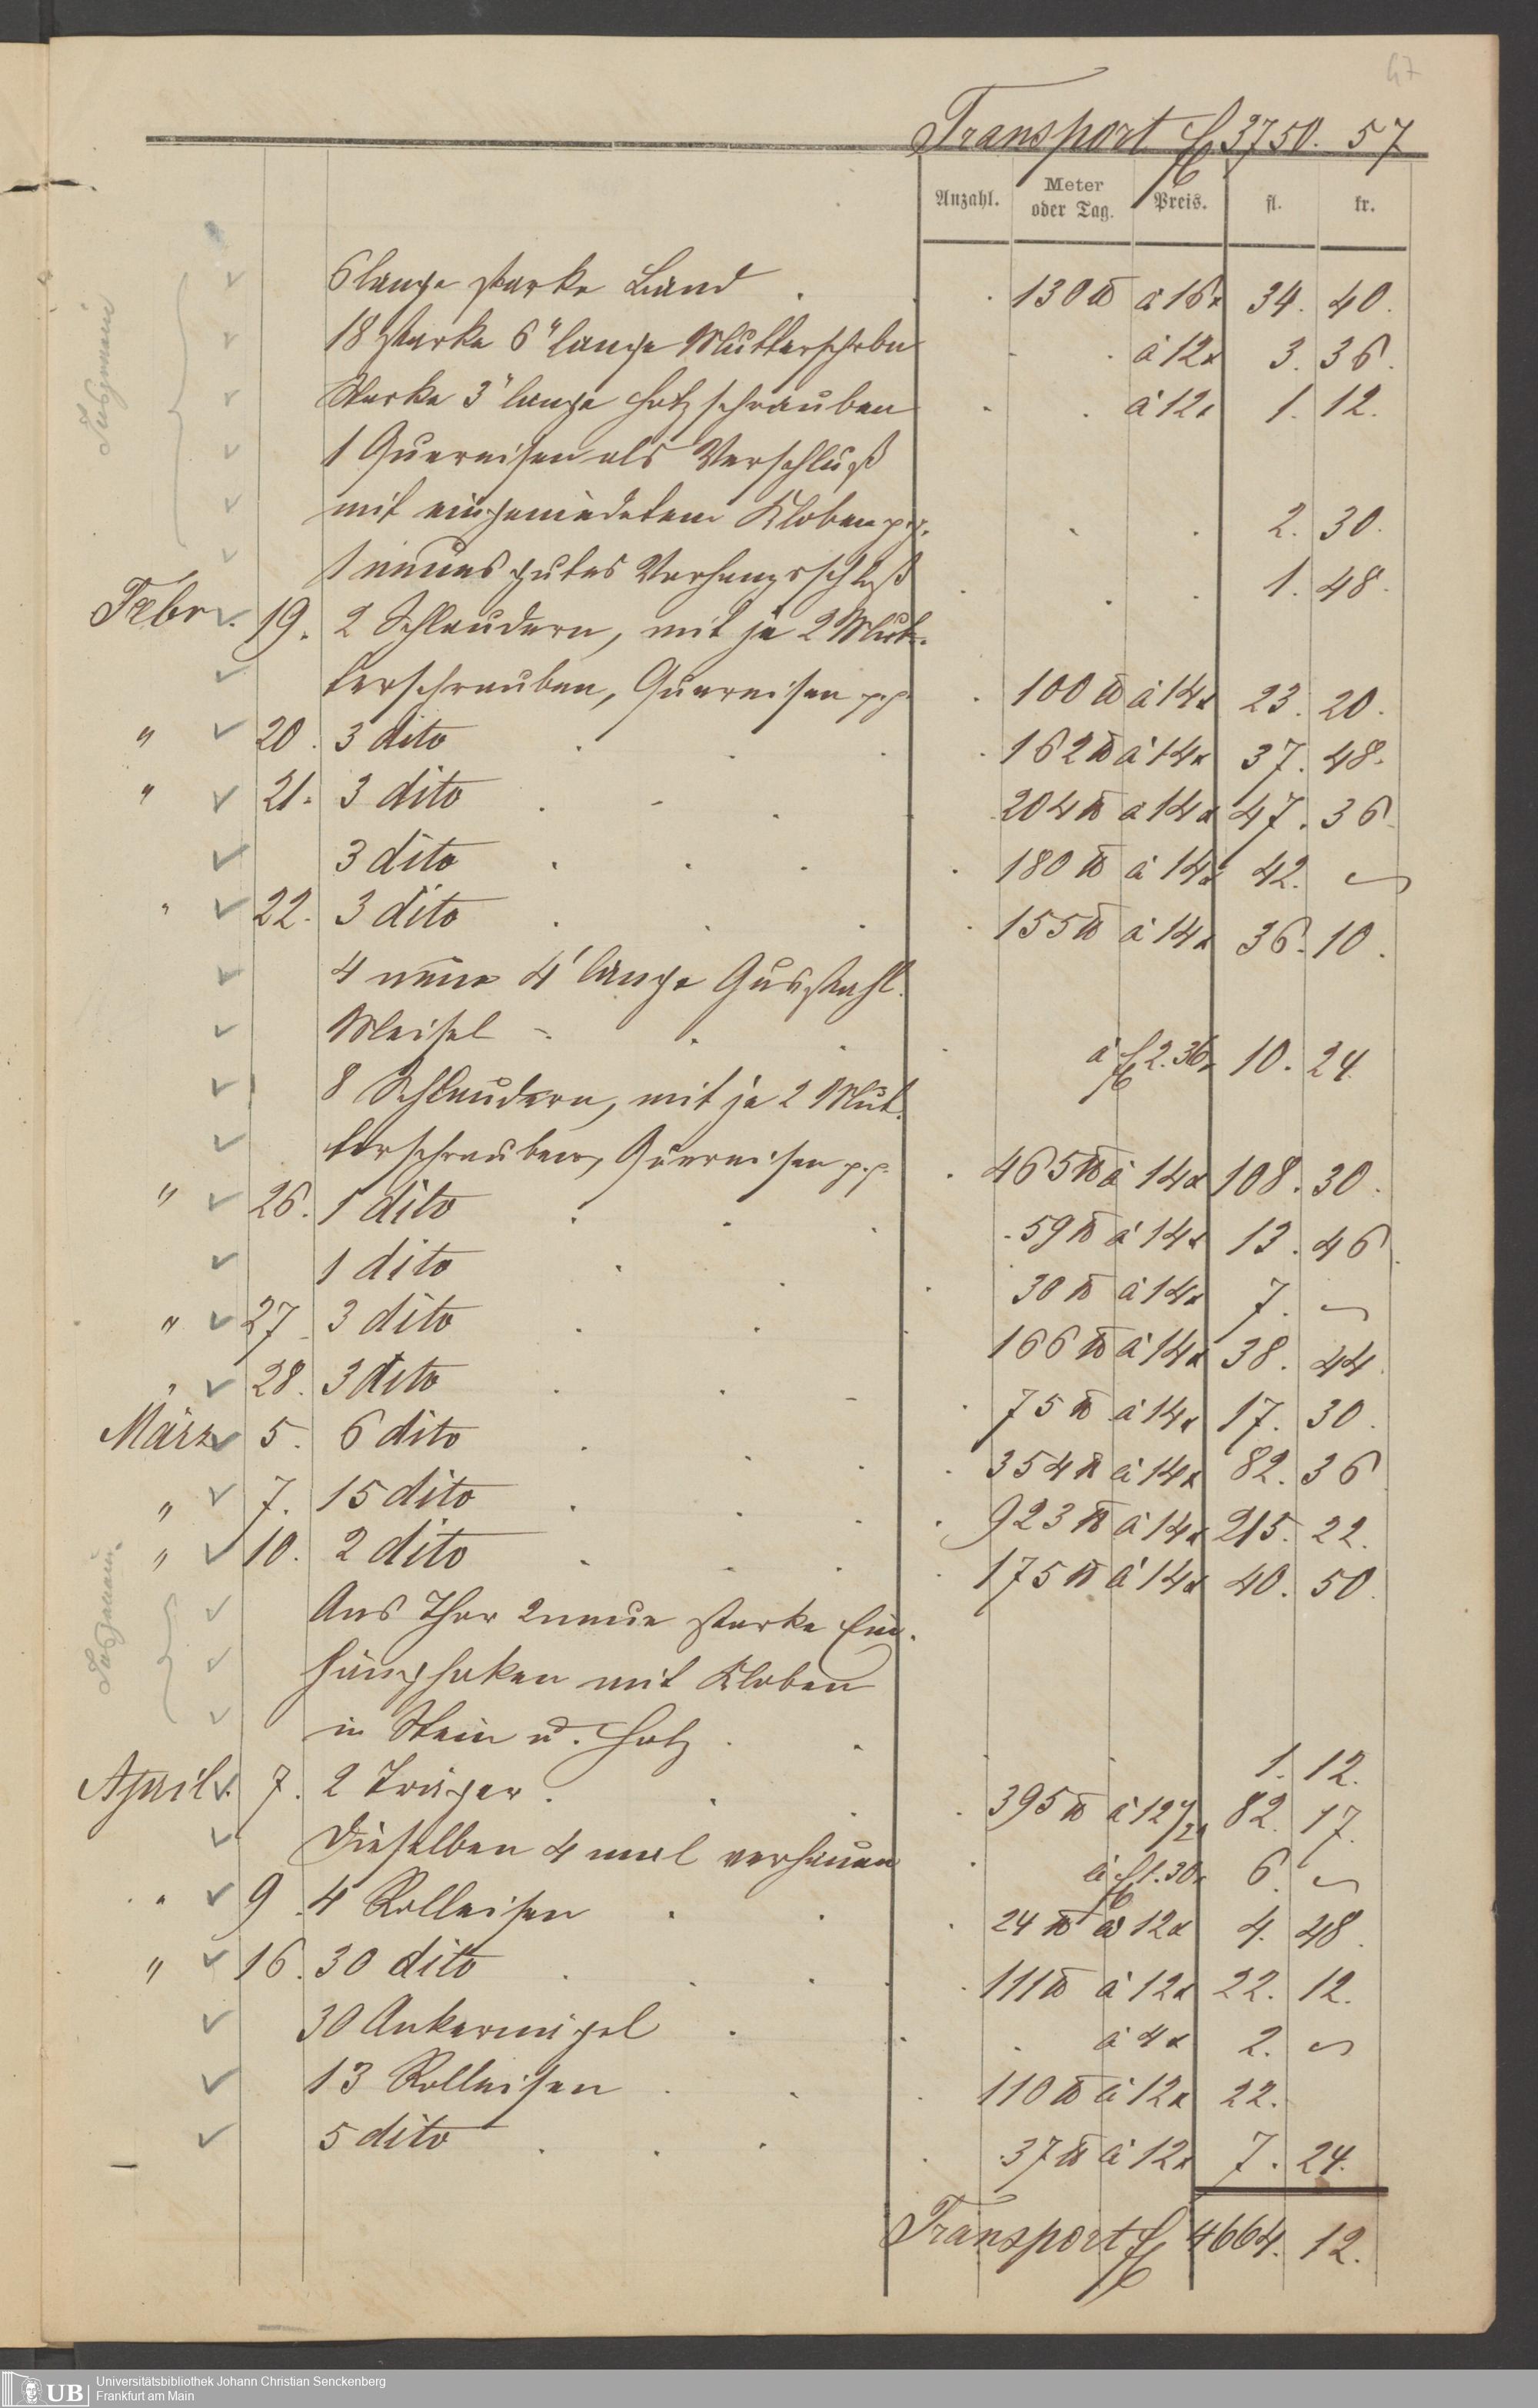 47
Transport f 3750. 57
Anzahl. Meter oder Tag. Preis. fl. kr.
6 lange starke Band . . . 130 ℔ à 16x 34. 40.
18 starke 6" lange Mutterschrbn . . à 12x 3. 36.
Starke 3" lange Holzschrauben . . à 12x 1. 12.
1 Quereisen als Verschluß
mit eingenietetem Kloben p.p. . . 2. 30.
1 neues gutes Vorhangschloß . . . 1. 48.
Febr. 19. 2 Schlaudern, mit je 2 Mut-
terschrauben, Quereisen p.p. . 100 ℔ à 14x 23. 20.
" 20. 3 dito . . . . 162 ℔ à 14x 37. 48.
" 21. 3 dito . . . . 204 ℔ à 14x 47. 36.
3 dito . . . . 180 ℔ à 14x 42. –
" 22. 3 dito . . . . 155 ℔ à 14x 36. 10.
4 neue 4' lange Gusstahl-
Meisel . . . . à f 2.36x 10. 24.
8 Schlaudern, mit je 2 Mut-
terschrauben, Quereisen p.p. . 465 ℔ à 14x 108. 30.
" 26. 1 dito . . . . 59 ℔ à 14x 13. 46.
1 dito . . . 30 ℔ à 14x 7. –
" 27 3 dito . . . 166 ℔ à 14x 38. 44.
" 28. 3 dito . . . . 75 ℔ à 14x 17. 30.
März 5. 6 dito . . . 354 ℔ à 14x 82. 36.
" 7. 15 dito . . . . 923 ℔ à 14x 215. 22.
" 10. 2 dito . . . . 175 ℔ à 14x 40. 50.
Ans Thor 2 neue starke Ein-
hänghaken mit Kloben
in Stein u. Holz . . . . 1. 12.
April. 7. 2 Träger . . . . 395 ℔ à 12½x 82. 17.
Dieselben 4 mal verhauen . à f 1.30x 6. –
" 9 4 Rolleisen . . . 24 ℔ à 12x 4. 48.
" 16. 30 dito . . . . 111 ℔ à 12x 22. 12.
30 Ankernägel . . . à 4x 2. –
13 Rolleisen . . . 110 ℔ à 12x 22.
5 dito . . . . 37 ℔ à 12x 7. 24.
Transport f 4664. 12.
UB Universitätsbibliothek Johann Christian Senckenberg
Frankfurt am Main